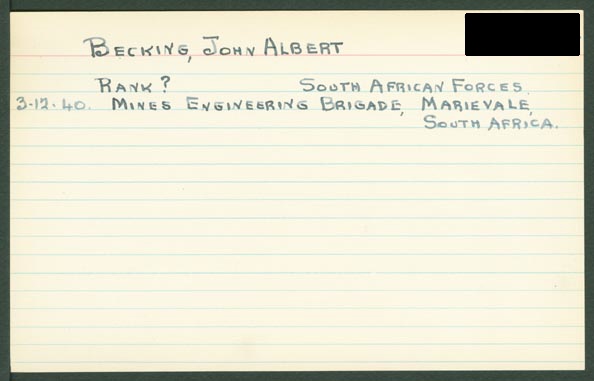 BECKING, JOHN ALBERT
RANK? SOUTH AFRICAN FORCES.
3-12-40. MINES ENGINEERING BRIGADE, MARIEVALE,
SOUTH AFRICA.